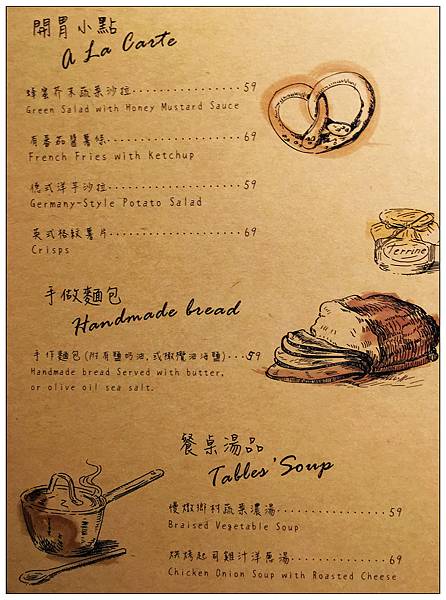 開胃小點
A La Carte
蜂蜜芥末蔬菜沙拉.................59
Green Salad with Honey Mustard Sauce
有番茄醬薯條.....................69
French Fries with Ketchup
德式洋芋沙拉.....................59
Germany-Style Potato Salad
英式格紋薯片.....................69
Crisps
Terrine
手做麵包
Handmade bread
手作麵包(附有鹽奶油,或橄欖油海鹽)...59
Handmade bread Served with butter,
or olive oil sea salt.
餐桌湯品
Tables' Soup
慢燉鄉村蔬菜濃湯.................59
Braised Vegetable Soup
烘烤起司雞汁洋蔥湯...............69
Chicken Onion Soup with Roasted Cheese